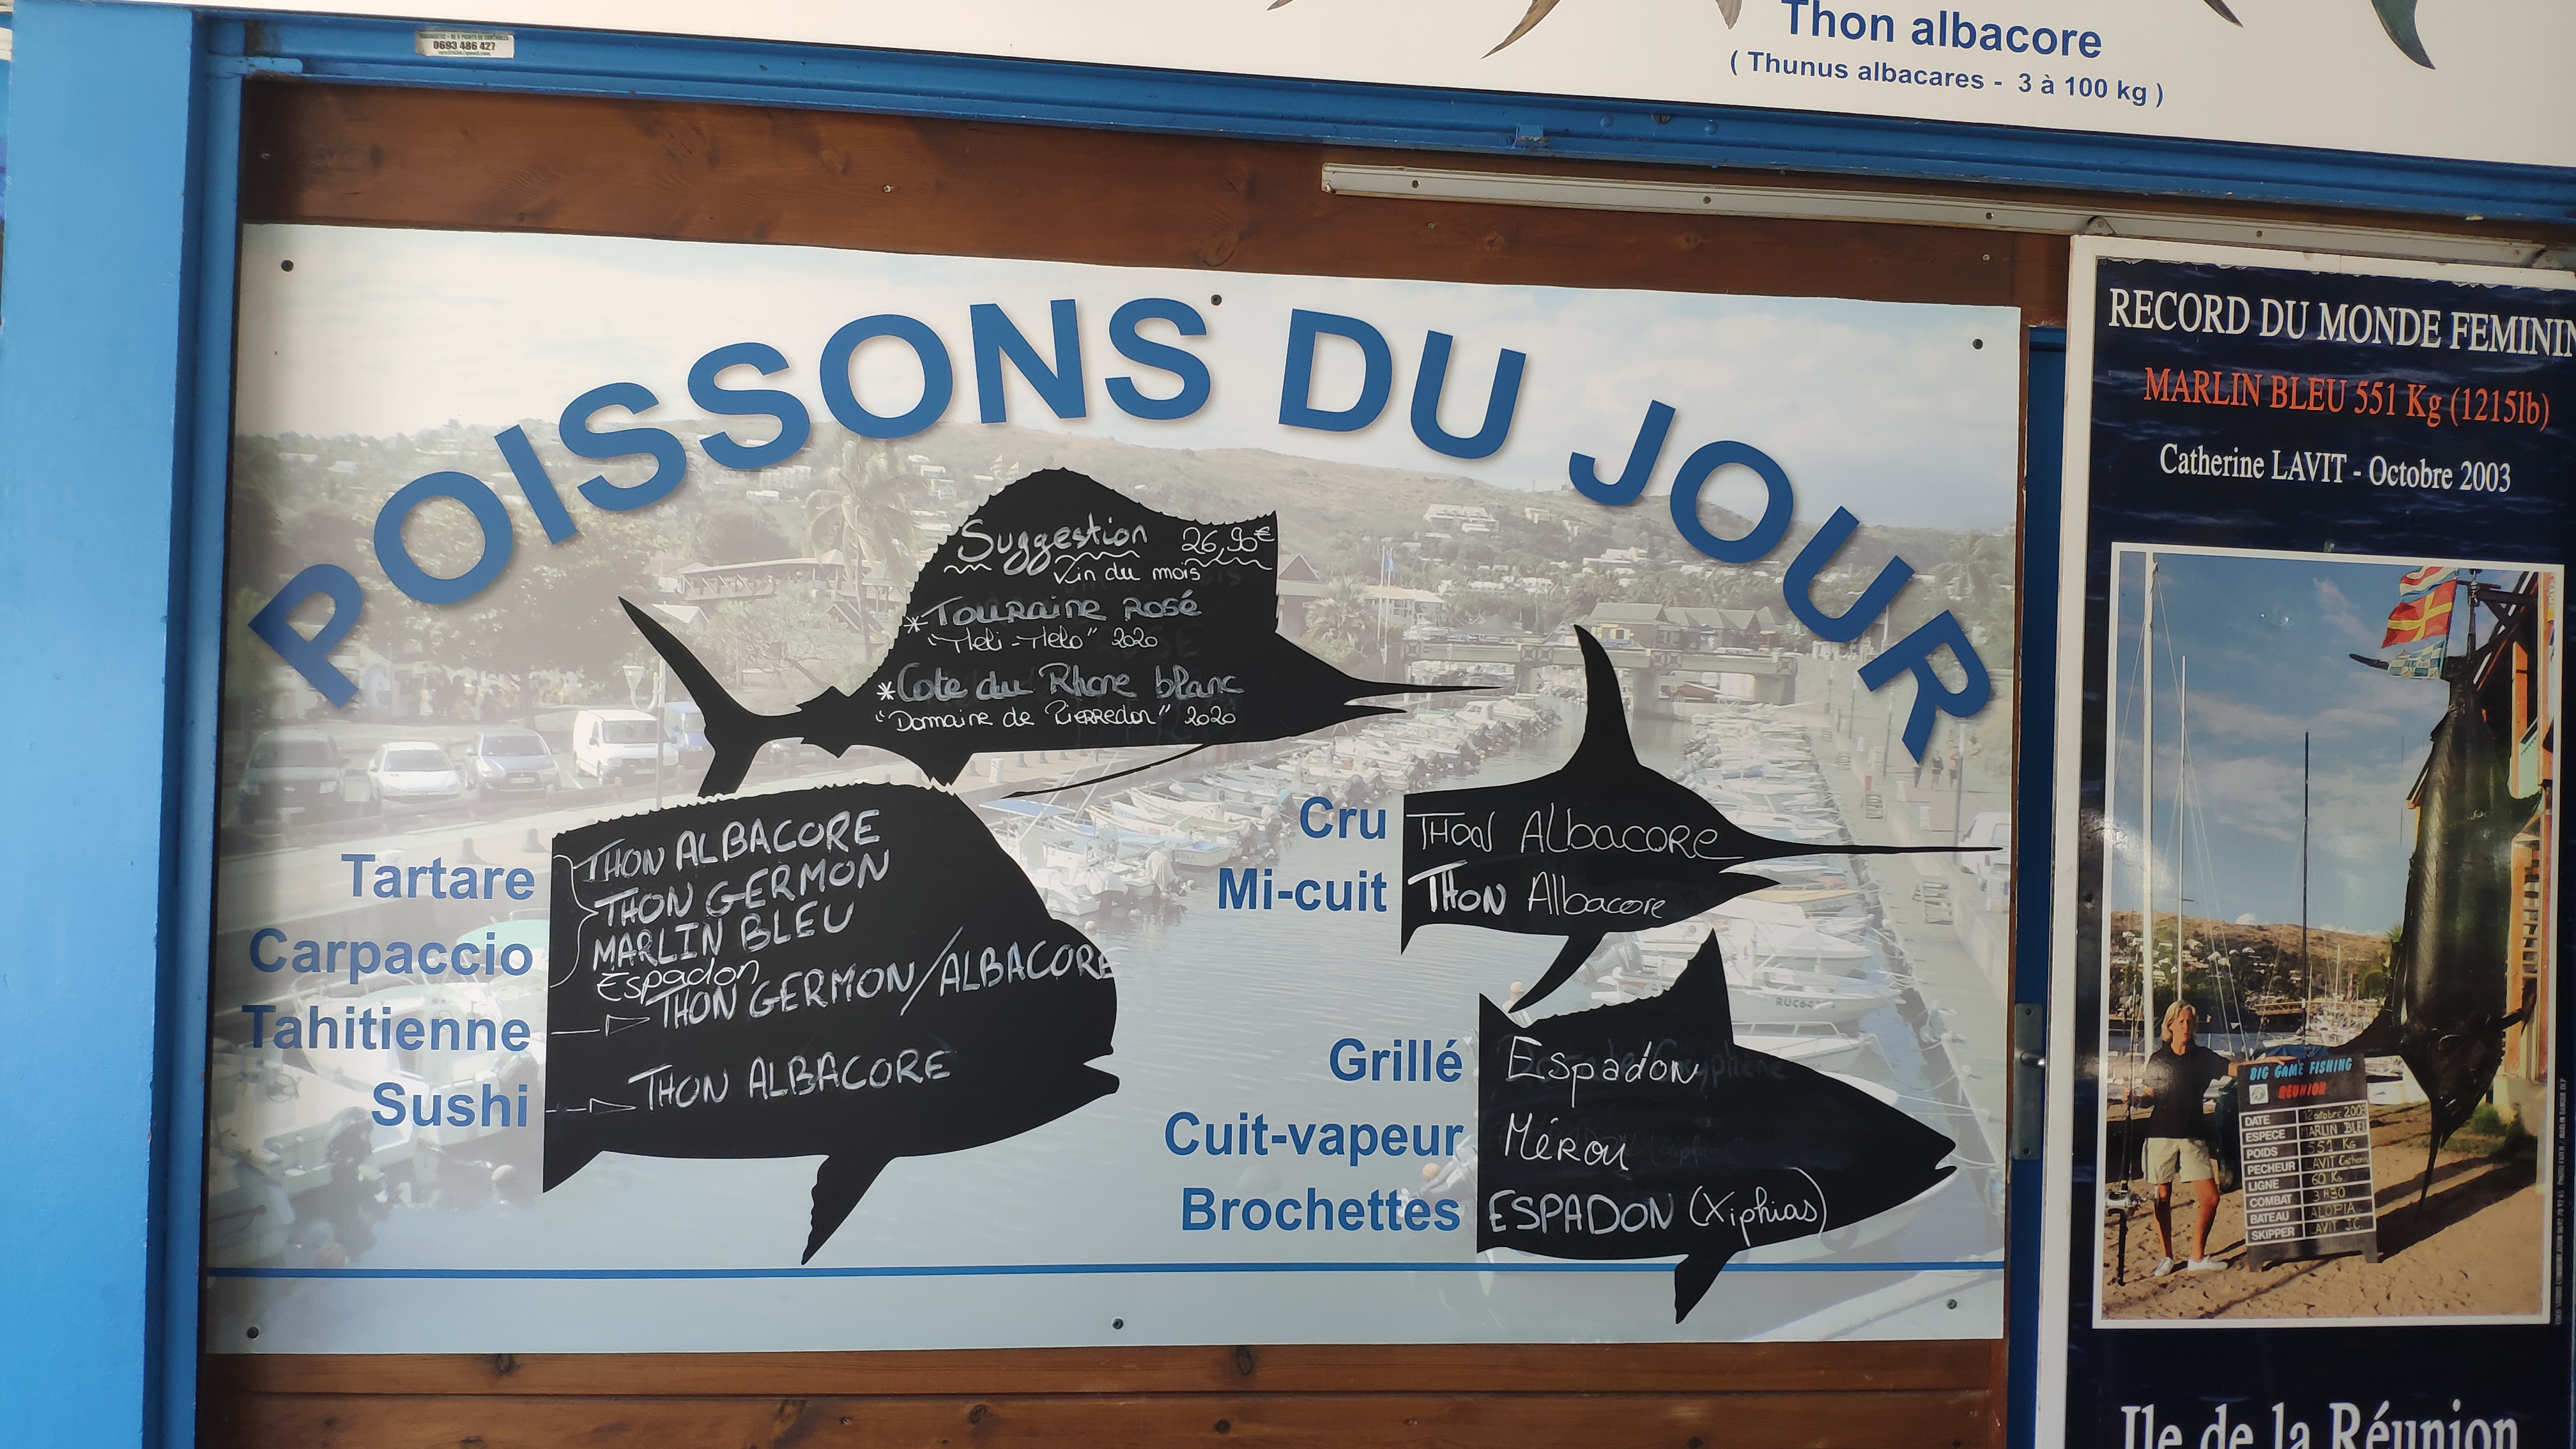 0693 486 427
Thon albacore
( Thunus albacares - 3 à 100 kg )
POISSONS DU JOUR
Suggestion 26,90€
Vin du mois
*Touraine Rosé
"Meli-Melo" 2020
*Cote du Rhone blanc
"Domaine de Pierredon" 2020
Tartare
Carpaccio
Tahitienne
Sushi
THON ALBACORE
THON GERMON
MARLIN BLEU
Espadon
THON GERMON/ALBACORE
THON ALBACORE
Cru THON Albacore
Mi-cuit THON Albacore
Grillé Espadon
Cuit-vapeur Mérou
Brochettes ESPADON (Xiphias)
RECORD DU MONDE FEMININ
MARLIN BLEU 551 Kg (1215lb)
Catherine LAVIT - Octobre 2003
BIG GAME FISHING
REUNION
DATE 12 octobre 2003
ESPECE MARLIN BLEU
POIDS 551 Kg
PECHEUR LAVIT Catherine
LIGNE 60 Kg
COMBAT 3H30
BATEAU ALOPIA
SKIPPER LAVIT J.C.
Ile de la Réunion